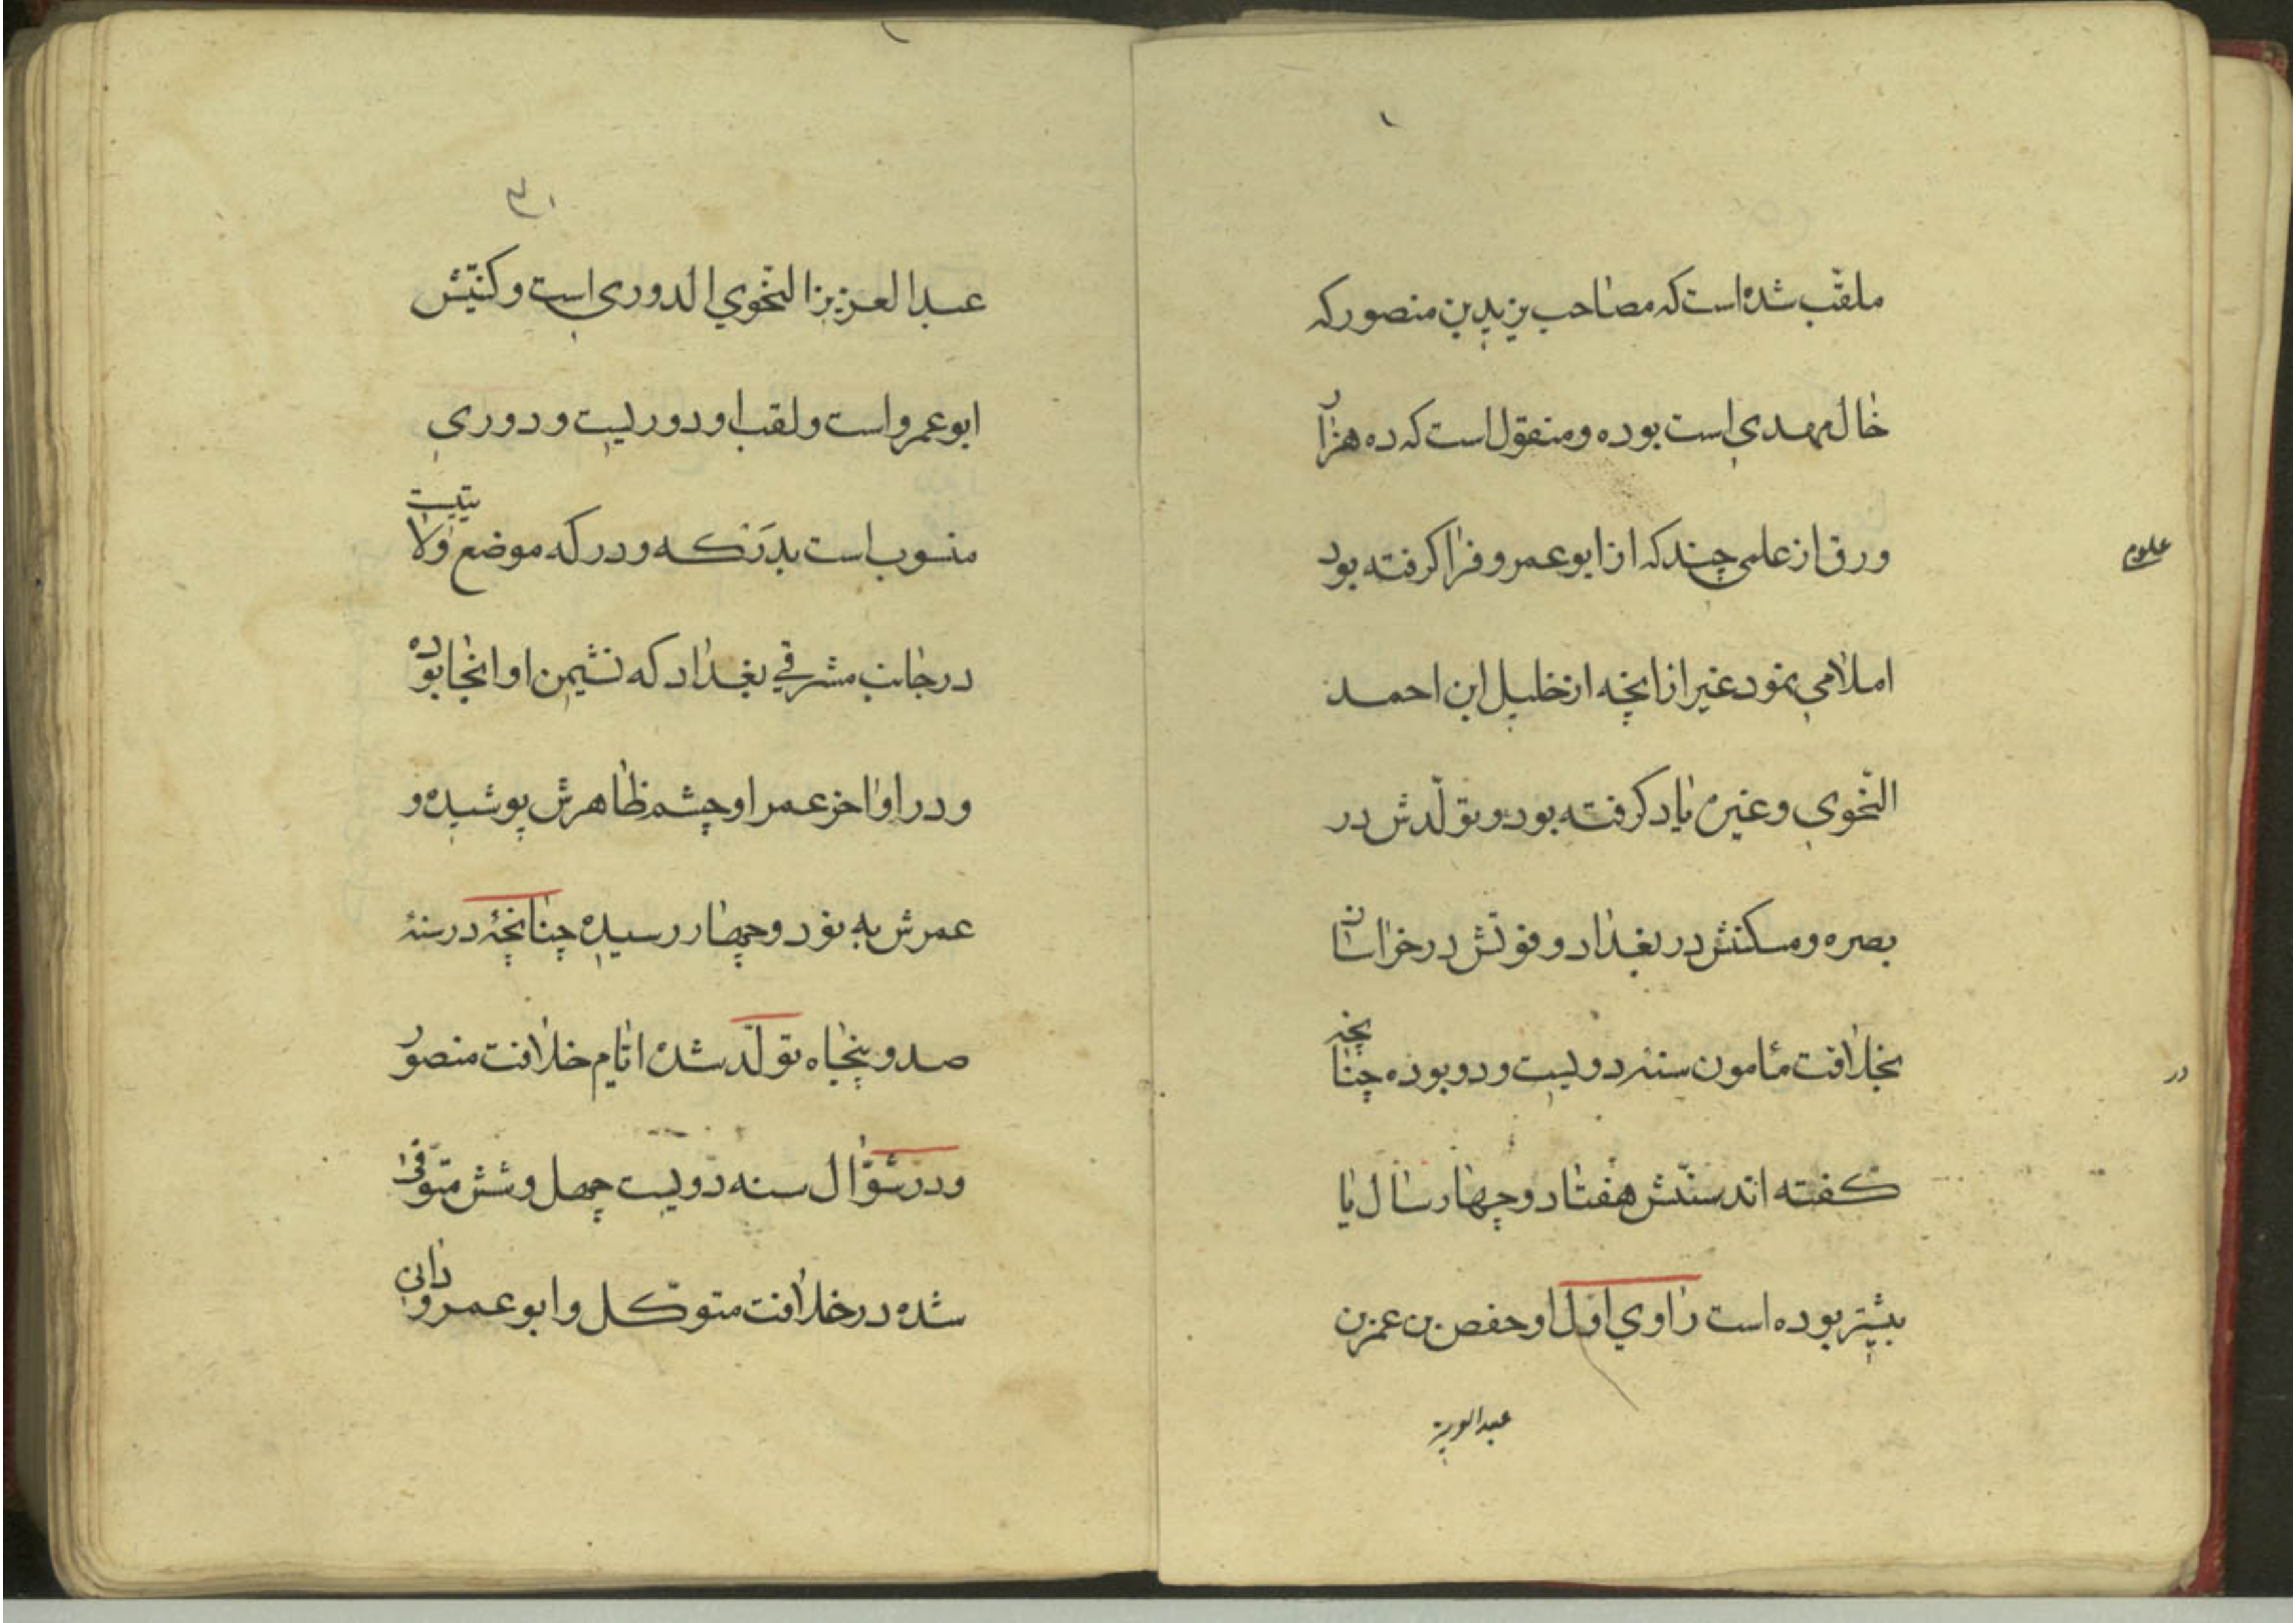 ملقّب شده است که مصاحب یزید بن منصور که
خال مهدی است بوده و منقول است که ده هزار
ورق از علمی چند که از ابو عمرو فرا کرفته بود
علوم
املا می نمود غیر از انچه از خلیل ابن احمد
النّحوی و غیره یاد کرفته بود و تولّدش در
بصره و مسکنش در بغداد و فوتش در خراسان
بخلافت مأمون سنه دویست و دو بوده چنانچه
در
کفته اند سنّش هفتاد و چهار سال یا
بیشتر بوده است راوي اول او حفص بن عمر بن
عبد العزیز
۳۰
عبد العزیز النّحوي الدوری است و کنیّتش
ابو عمرو است و لقب او دوریست و دوری
منسوب است بدَرْکه و درکه موضع ولایتیست
در جانب مشرقي بغداد که نشیمن او انجا بوده
و در اواخر عمر او چشم ظاهرش پوشیده و
عمرش به نود و چهار رسیده چنانچهٔ در سنهٔ
صد و پنجاه تولّد شده ایّام خلافت منصور
و در شوّال سنه دویست چهل و شش متوّفی
شده در خلافت متوکّل و ابو عمرو دانی